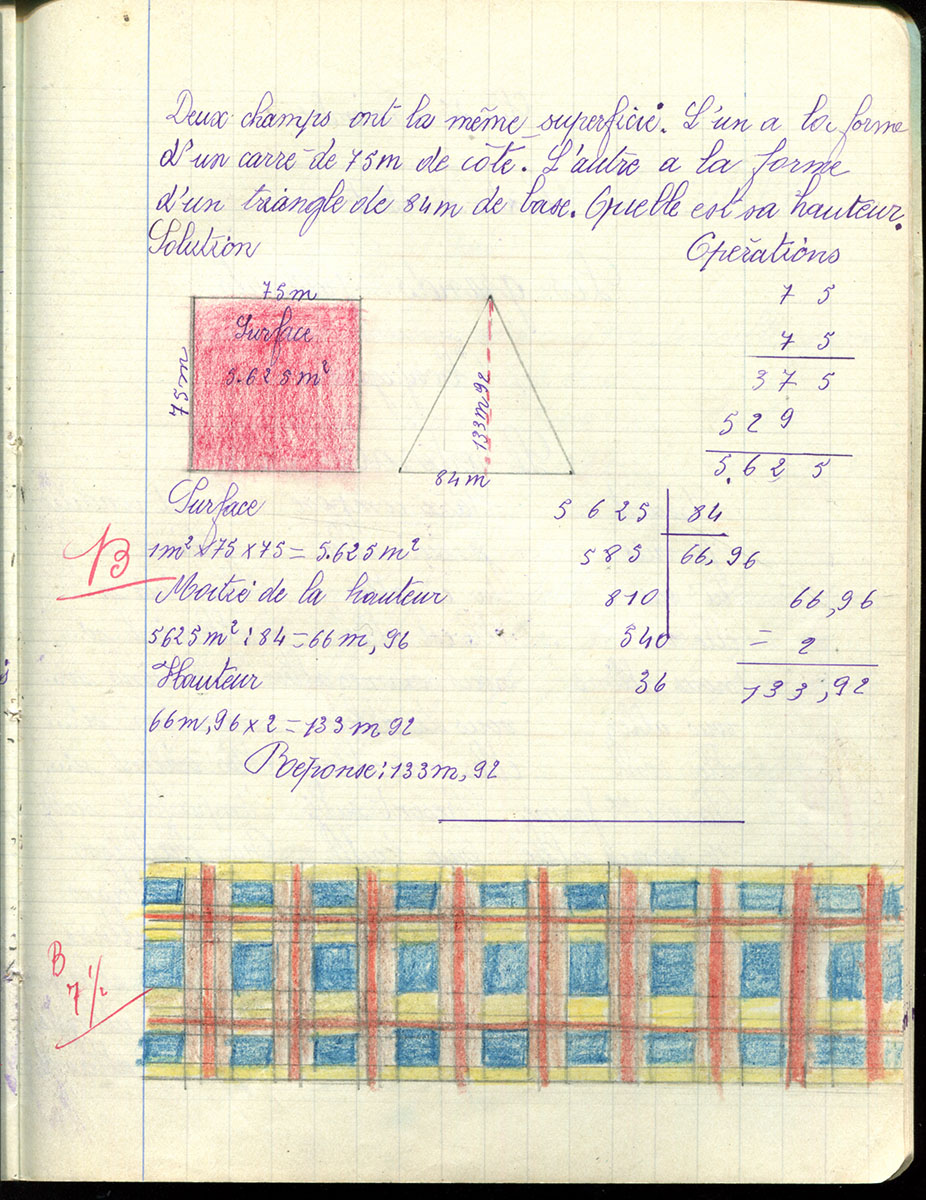 Deux champs ont la même superficie. L'un a la forme
d'un carré de 75m de côté. L'autre a la forme
d'un triangle de 84m de base. Quelle est sa hauteur.
Solution
Opérations
75m
75m
Surface
5.625m²
133m92
84m
7 5
7 5
3 7 5
5 2 9
5.6 2 5
Surface
1m² × 75 × 75 = 5.625m²
Moitié de la hauteur
5625m² : 84 = 66m,96
Hauteur
66m,96 × 2 = 133m92
Réponse : 133m,92
5 6 2 5 84
5 8 5 66,96
8 1 0
5 4 0
3 6
66,96
= 2
133,92
B
B
7 1/2